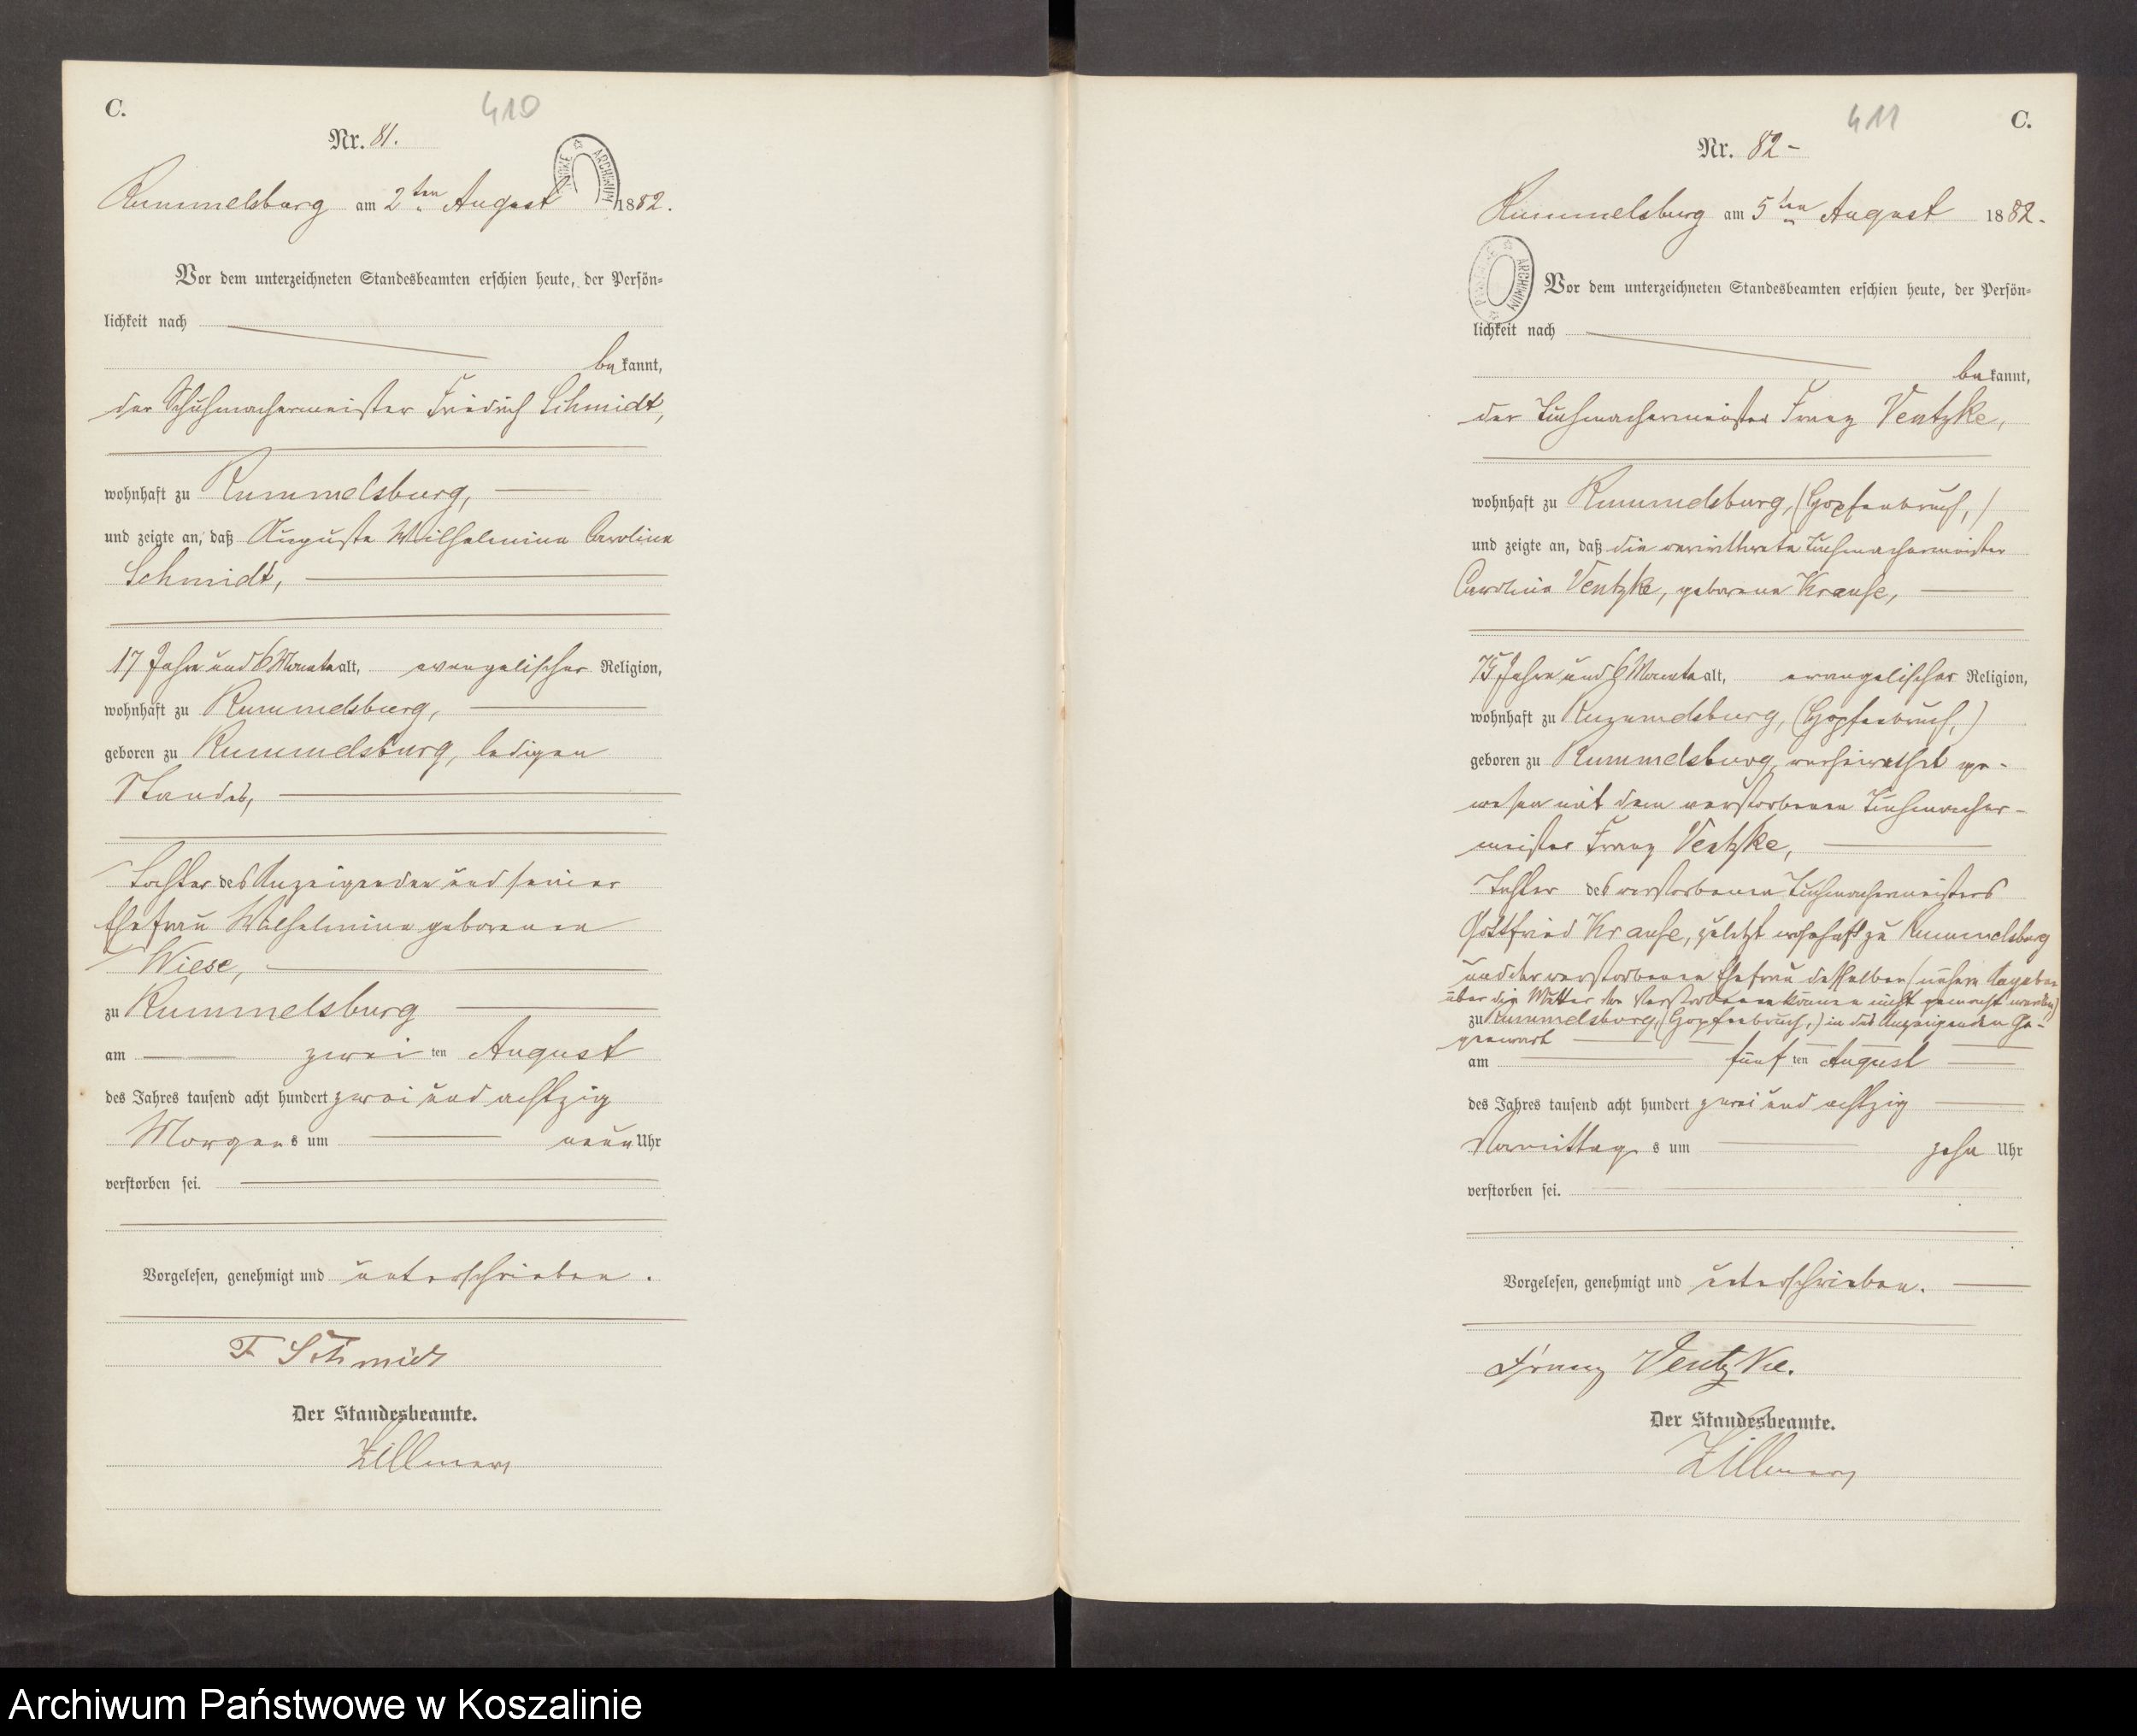 C.
410
Nr. 81.
ARCHIWUM
Rummelsburg am 2ten August 1882.
Vor dem unterzeichneten Standesbeamten erschien heute, der Persön=
lichkeit nach
bekannt,
der Schuhmachermeister Friedrich Schmidt,
wohnhaft zu Rummelsburg,
und zeigte an, daß Auguste Wilhelmine Caroline
Schmidt,
17 Jahre und 6 Monate alt, evangelischer Religion,
wohnhaft zu Rummelsburg,
geboren zu Rummelsburg, ledigen
Standes,
Tochter des Anzeigenden und seiner
Ehefrau Wilhelmine geborenen
Wiese,
zu Rummelsburg
am zweiten August
des Jahres tausend acht hundert zwei und achtzig
Morgens um neun Uhr
verstorben sei.
Vorgelesen, genehmigt und unterschrieben.
F Schmidt
Der Standesbeamte.
Zillmer
411
C.
Nr. 82-
Rummelsburg am 5ten August 1882.
ARCHIWUM
Vor dem unterzeichneten Standesbeamten erschien heute, der Persön=
lichkeit nach
bekannt,
der Tuchmachermeister Franz Ventzke,
wohnhaft zu Rummelsburg, (Hopfenbruch,)
und zeigte an, daß die verwittwete Tuchmachermeister
Caroline Ventzke, geborene Krause,
75 Jahre und 6 Monate alt, evangelischer Religion,
wohnhaft zu Rummelsburg, (Hopfenbruch,)
geboren zu Rummelsburg, verheirathet ge-
wesen mit dem verstorbenen Tuchmacher-
meister Franz Ventzke,
Tochter des verstorbenen Tuchmachermeisters
Gottfried Krause, zuletzt wohnhaft zu Rummelsburg
und der verstorbenen Ehefrau desselben (nähere Angaben
über die Mutter der Verstorbenen können nicht gemacht werden)
zu Rummelsburg, (Hopfenbruch,) in des Anzeigenden Ge-
genwart
am fünften August
des Jahres tausend acht hundert zwei und achtzig
Vormittags um zehn Uhr
verstorben sei.
Vorgelesen, genehmigt und unterschrieben.
Franz Ventzke.
Der Standesbeamte.
Zillmer
Archiwum Państwowe w Koszalinie